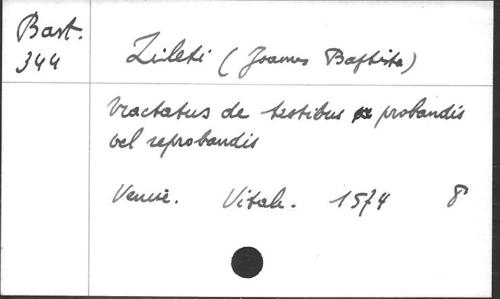 Bart.
344
Zileti (Joannes Baptista)
Tractatus de testibus probandis
vel reprobandis
Venise. Vitali. 1574 8